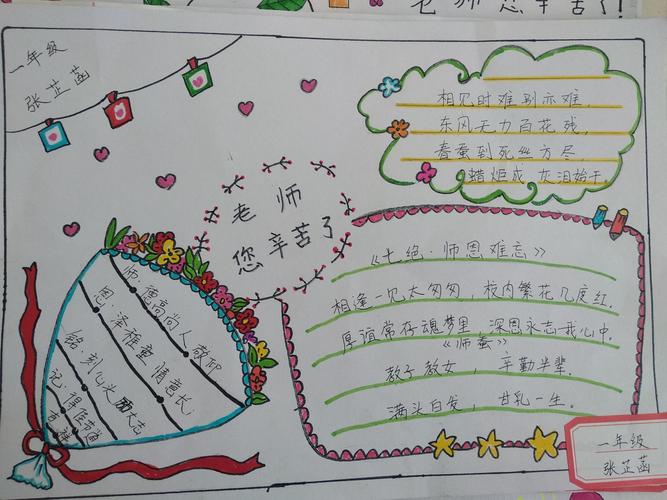 老师您辛苦了!
一年级
张芷菡
相见时难别亦难,
东风无力百花残,
春蚕到死丝方尽,
蜡炬成灰泪始干.
老师
您辛苦了
《七绝·师恩难忘》
相逢一见太匆匆,校内繁花几度红.
厚谊常存魂梦里,深恩永志我心中.
《师蚕》
教子教女,辛勤半辈.
满头白发,甘乳一生.
师:德高尚人敬仰
恩:泽稚童情意长
铭:刻心头励大志
记:得佳节
一年级
张芷菡